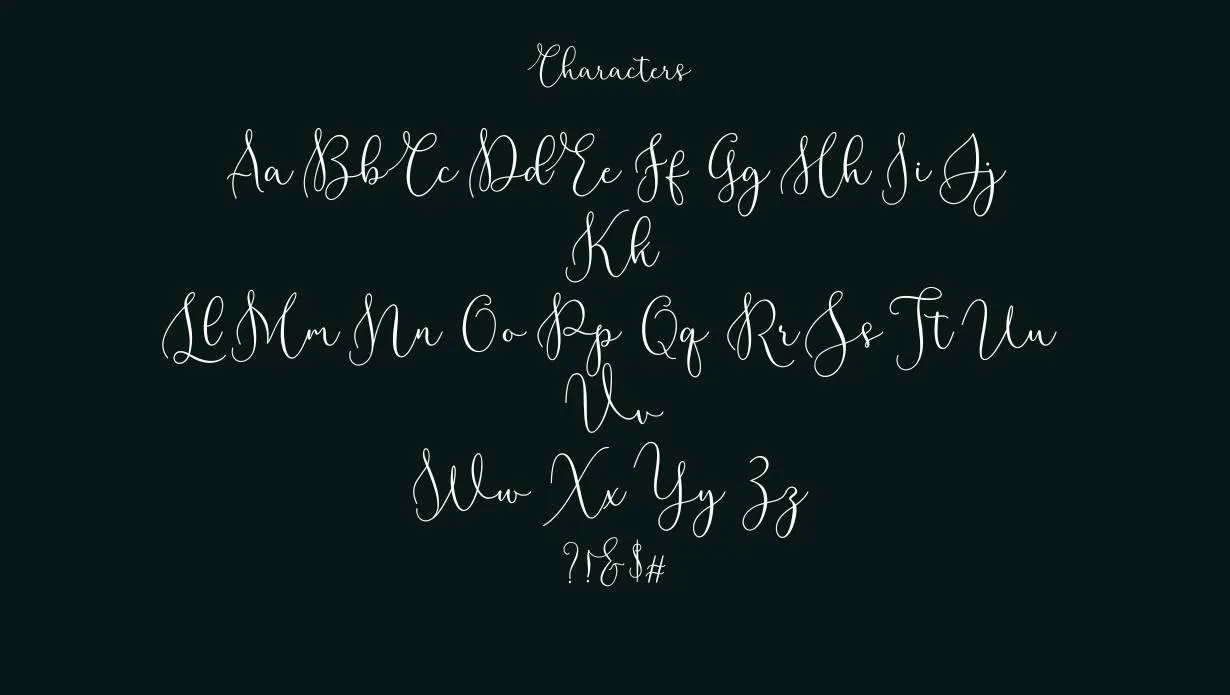 Characters
Aa Bb Cc Dd Ee Ff Gg Hh Ii Jj
Kk
Ll Mm Nn Oo Pp Qq Rr Ss Tt Uu
Vv
Ww Xx Yy Zz
?!&$#